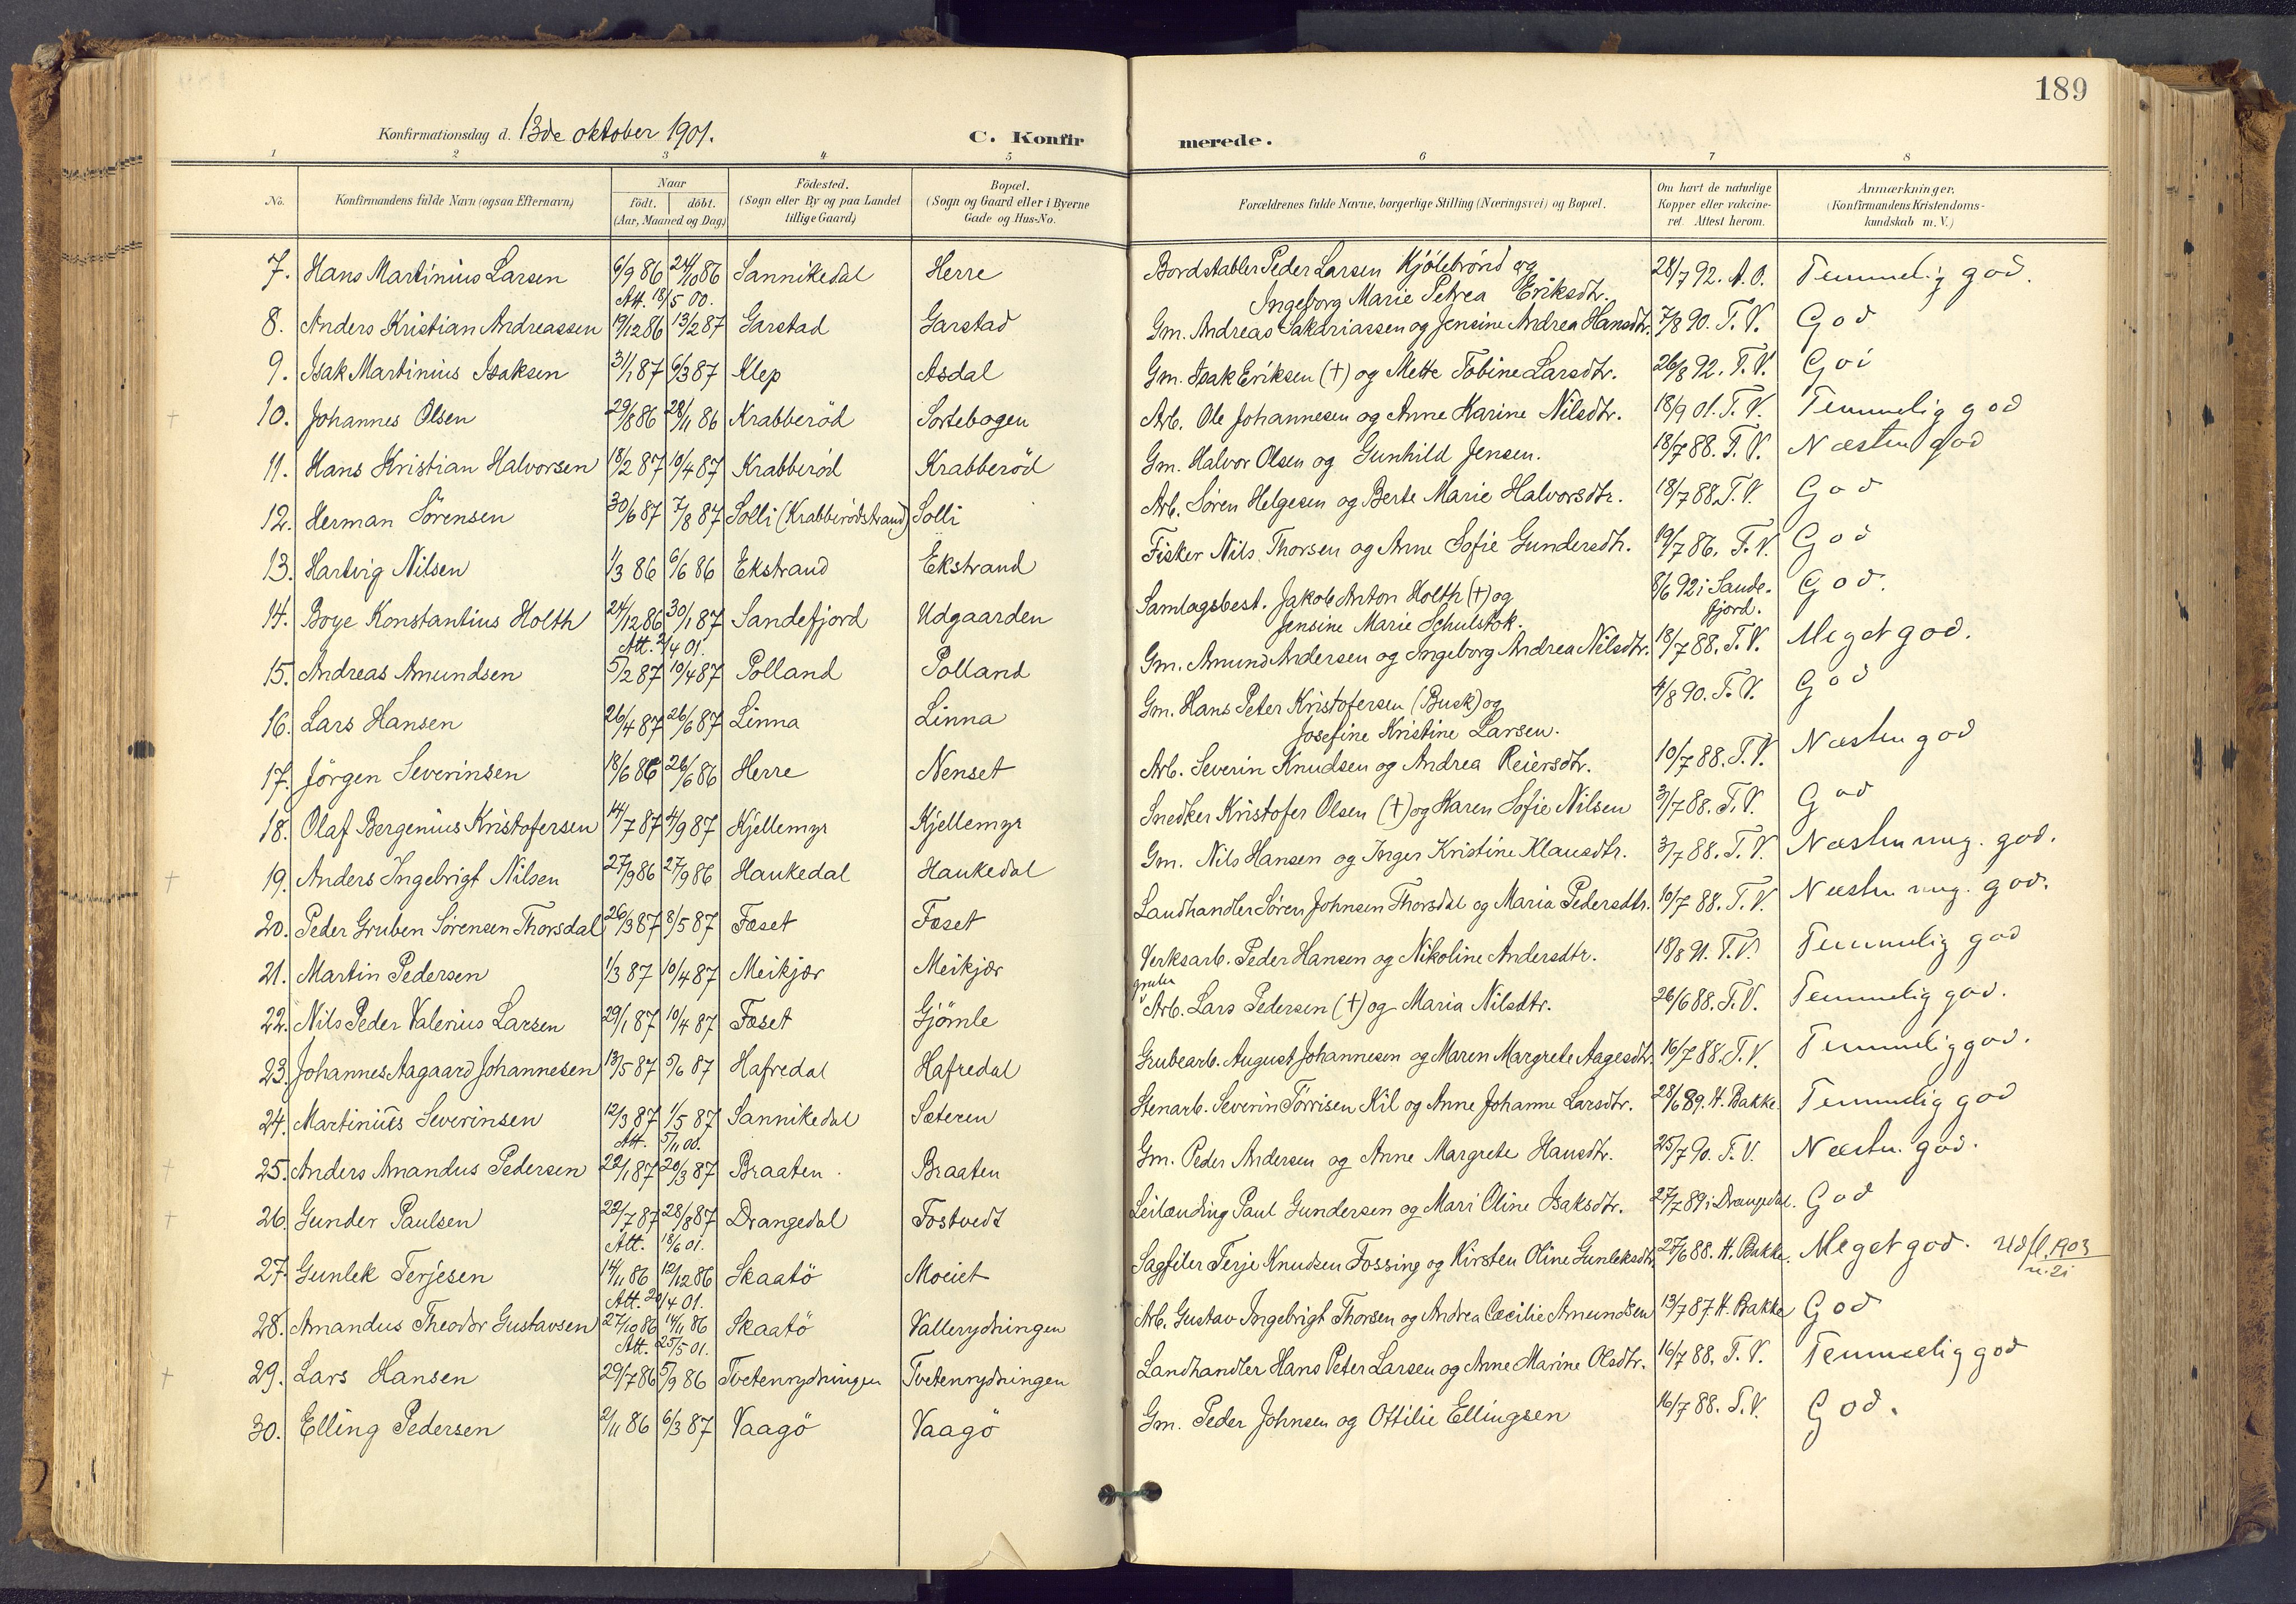 189
Konfirmationsdag d. 13de oktober 1901. C. Konfirmerede.
1 2 3 4 5 6 7 8
No. Konfirmandens fulde Navn (ogsaa Efternavn) Naar födt. döbt. (Aar, Maaned og Dag) Födested. (Sogn eller By og paa Landet tillige Gaard) Bopæl. (Sogn og Gaard eller i Byerne Gade og Hus-No. Forældrenes fulde Navne, borgerlige Stilling (Næringsvei) og Bopæl. Om havt de naturlige Kopper eller vaccineret. Attest herom. Anmærkninger. (Konfirmandens Kristendomskundskab m. V.)
7. Hans Martinius Larsen 6/9 86 24/10 86 Sannikedal Herre Bordstabler Peder Larsen Kjölebrönd og 28/7 92. A.O. Temmelig god.
Att. 18/5 00. Ingeborg Marie Petrea Eriksdtr.
8. Anders Kristian Andreassen 19/12 86 13/2 87 Garstad Garstad Gm. Andreas Sakariassen og Jensine Andrea Hansdtr. 7/8 90. T.V. God
9. Isak Martinius Isaksen 31/1 87 6/3 87 Klep Asdal Gm. Isak Eriksen (†) og Mette Tobine Larsdtr. 26/8 92. T.V. God
10. Johannes Olsen 29/8 86 28/11 86 Krabberöd Sortebogen Arb. Ole Johannesen og Anne Karine Nilsdtr. 18/9 01. T.V. Temmelig god
11. Hans Kristian Halvorsen 18/2 87 10/4 87 Krabberöd Krabberöd Gm. Halvor Olsen og Gunhild Jensen. 18/7 88. T.V. Næsten god
12. Herman Sörensen 30/6 87 7/8 87 Solli (Krabberödstrand) Solli Arb. Sören Helgesen og Berte Marie Halvorsdtr. 18/7 88 T.V. God
13. Hartvig Nilsen 1/3 86 6/6 86 Ekstrand Ekstrand Fisker Nils Thorsen og Anne Sofie Gundersdtr. 19/7 86. T.V. God
14. Boye Konstantius Holth 24/12 86 30/1 87 Sandefjord Udgaarden Samlagsbest. Jakob Anton Holth (†) og 8/6 92 i Sandefjord. God.
Att. 2/4 01. Jensine Marie Schulstok.
15. Andreas Amundsen 5/2 87 10/4 87 Polland Polland Gm. Amund Andersen og Ingeborg Andrea Nilsdtr. 18/7 88. T.V. Meget god.
16. Lars Hansen 26/4 87 26/6 87 Linna Linna Gm. Hans Peter Kristofersen (Busk) og 4/8 90. T.V. God
Josefine Kristine Larsen.
17. Jörgen Severinsen 18/6 86 26/6 86 Herre Nenset Arb. Severin Knudsen og Andrea Reiersdtr. 10/7 88. T.V. Næsten god
18. Olaf Bergenius Kristofersen 14/7 87 4/9 87 Kjellemyr Kjellemyr Snedker Kristofer Olsen (†) og Karen Sofie Nilsen 3/7 88. T.V. God
19. Anders Ingebrigt Nilsen 27/9 86 27/9 86 Haukedal Haukedal Gm. Nils Hansen og Inger Kristine Klausdtr. 3/7 88. T.V. Næsten meg. god.
20. Peder Gruben Sörensen Thorsdal 26/3 87 8/5 87 Fæset Fæset Landhandler Sören Johnsen Thorsdal og Maria Pedersdtr. 10/7 88. T.V. Næsten meg. god.
21. Martin Pedersen 1/3 87 10/4 87 Meikjær Meikjær Verksarb. Peder Hansen og Nikoline Andersdtr. 18/8 91. T.V. Temmelig god
22. Nils Peder Valerius Larsen 29/1 87 10/4 87 Fæset Gjömle grube Arb. Lars Pedersen (†) og Maria Nilsdtr. 26/6 88. T.V. Temmelig god.
23. Johannes Aagaard Johannesen 13/5 87 5/6 87 Hafredal Hafredal Grubearb. August Johannesen og Maren Margrete Aagesdtr. 16/7 88. T.V. Temmelig god.
24. Martinius Severinsen 12/3 87 1/5 87 Sannikedal Sæteren Stenarb. Severin Törrisen Kil og Anne Johanne Larsdtr. 28/6 89. H. Bakke. Temmelig god
Att. 5/11 00.
25. Anders Amandus Pedersen 22/1 87 20/3 87 Braaten Braaten Gm. Peder Andersen og Anne Margrete Hansdtr. 25/7 90. T.V. Næsten god.
26. Gunder Paulsen 22/7 87 28/8 87 Drangedal Fostvedt Leilænding Paul Gundersen og Mari Oline Isaksdtr. 27/7 89 i Drangedal. God
Att. 18/6 01.
27. Gunlek Terjesen 14/11 86 12/12 86 Skaatö Moeiet Sagfiler Terje Knudsen Fossing og Kirsten Oline Gunleksdtr. 27/6 88. H. Bakke. Meget god. Udfl. 1903 n. 21
Att. 20/4 01.
28. Amandus Theodor Gustavsen 27/10 86 14/11 86 Skaatö Vallerydningen Arb. Gustav Ingebrigt Thorsen og Andrea Cæcilie Amundsen 13/7 87 H. Bakke God
Att. 25/5 01.
29. Lars Hansen 29/7 86 5/9 86 Tvetenrydningen Tvetenrydningen Landhandler Hans Peter Larsen og Anne Marine Olsdtr. 16/7 88. T.V. Temmelig god
30. Elling Pedersen 2/11 86 6/3 87 Vaagö Vaagö Gm. Peder Johnsen og Ottilie Ellingsen 16/7 88. T.V. God.